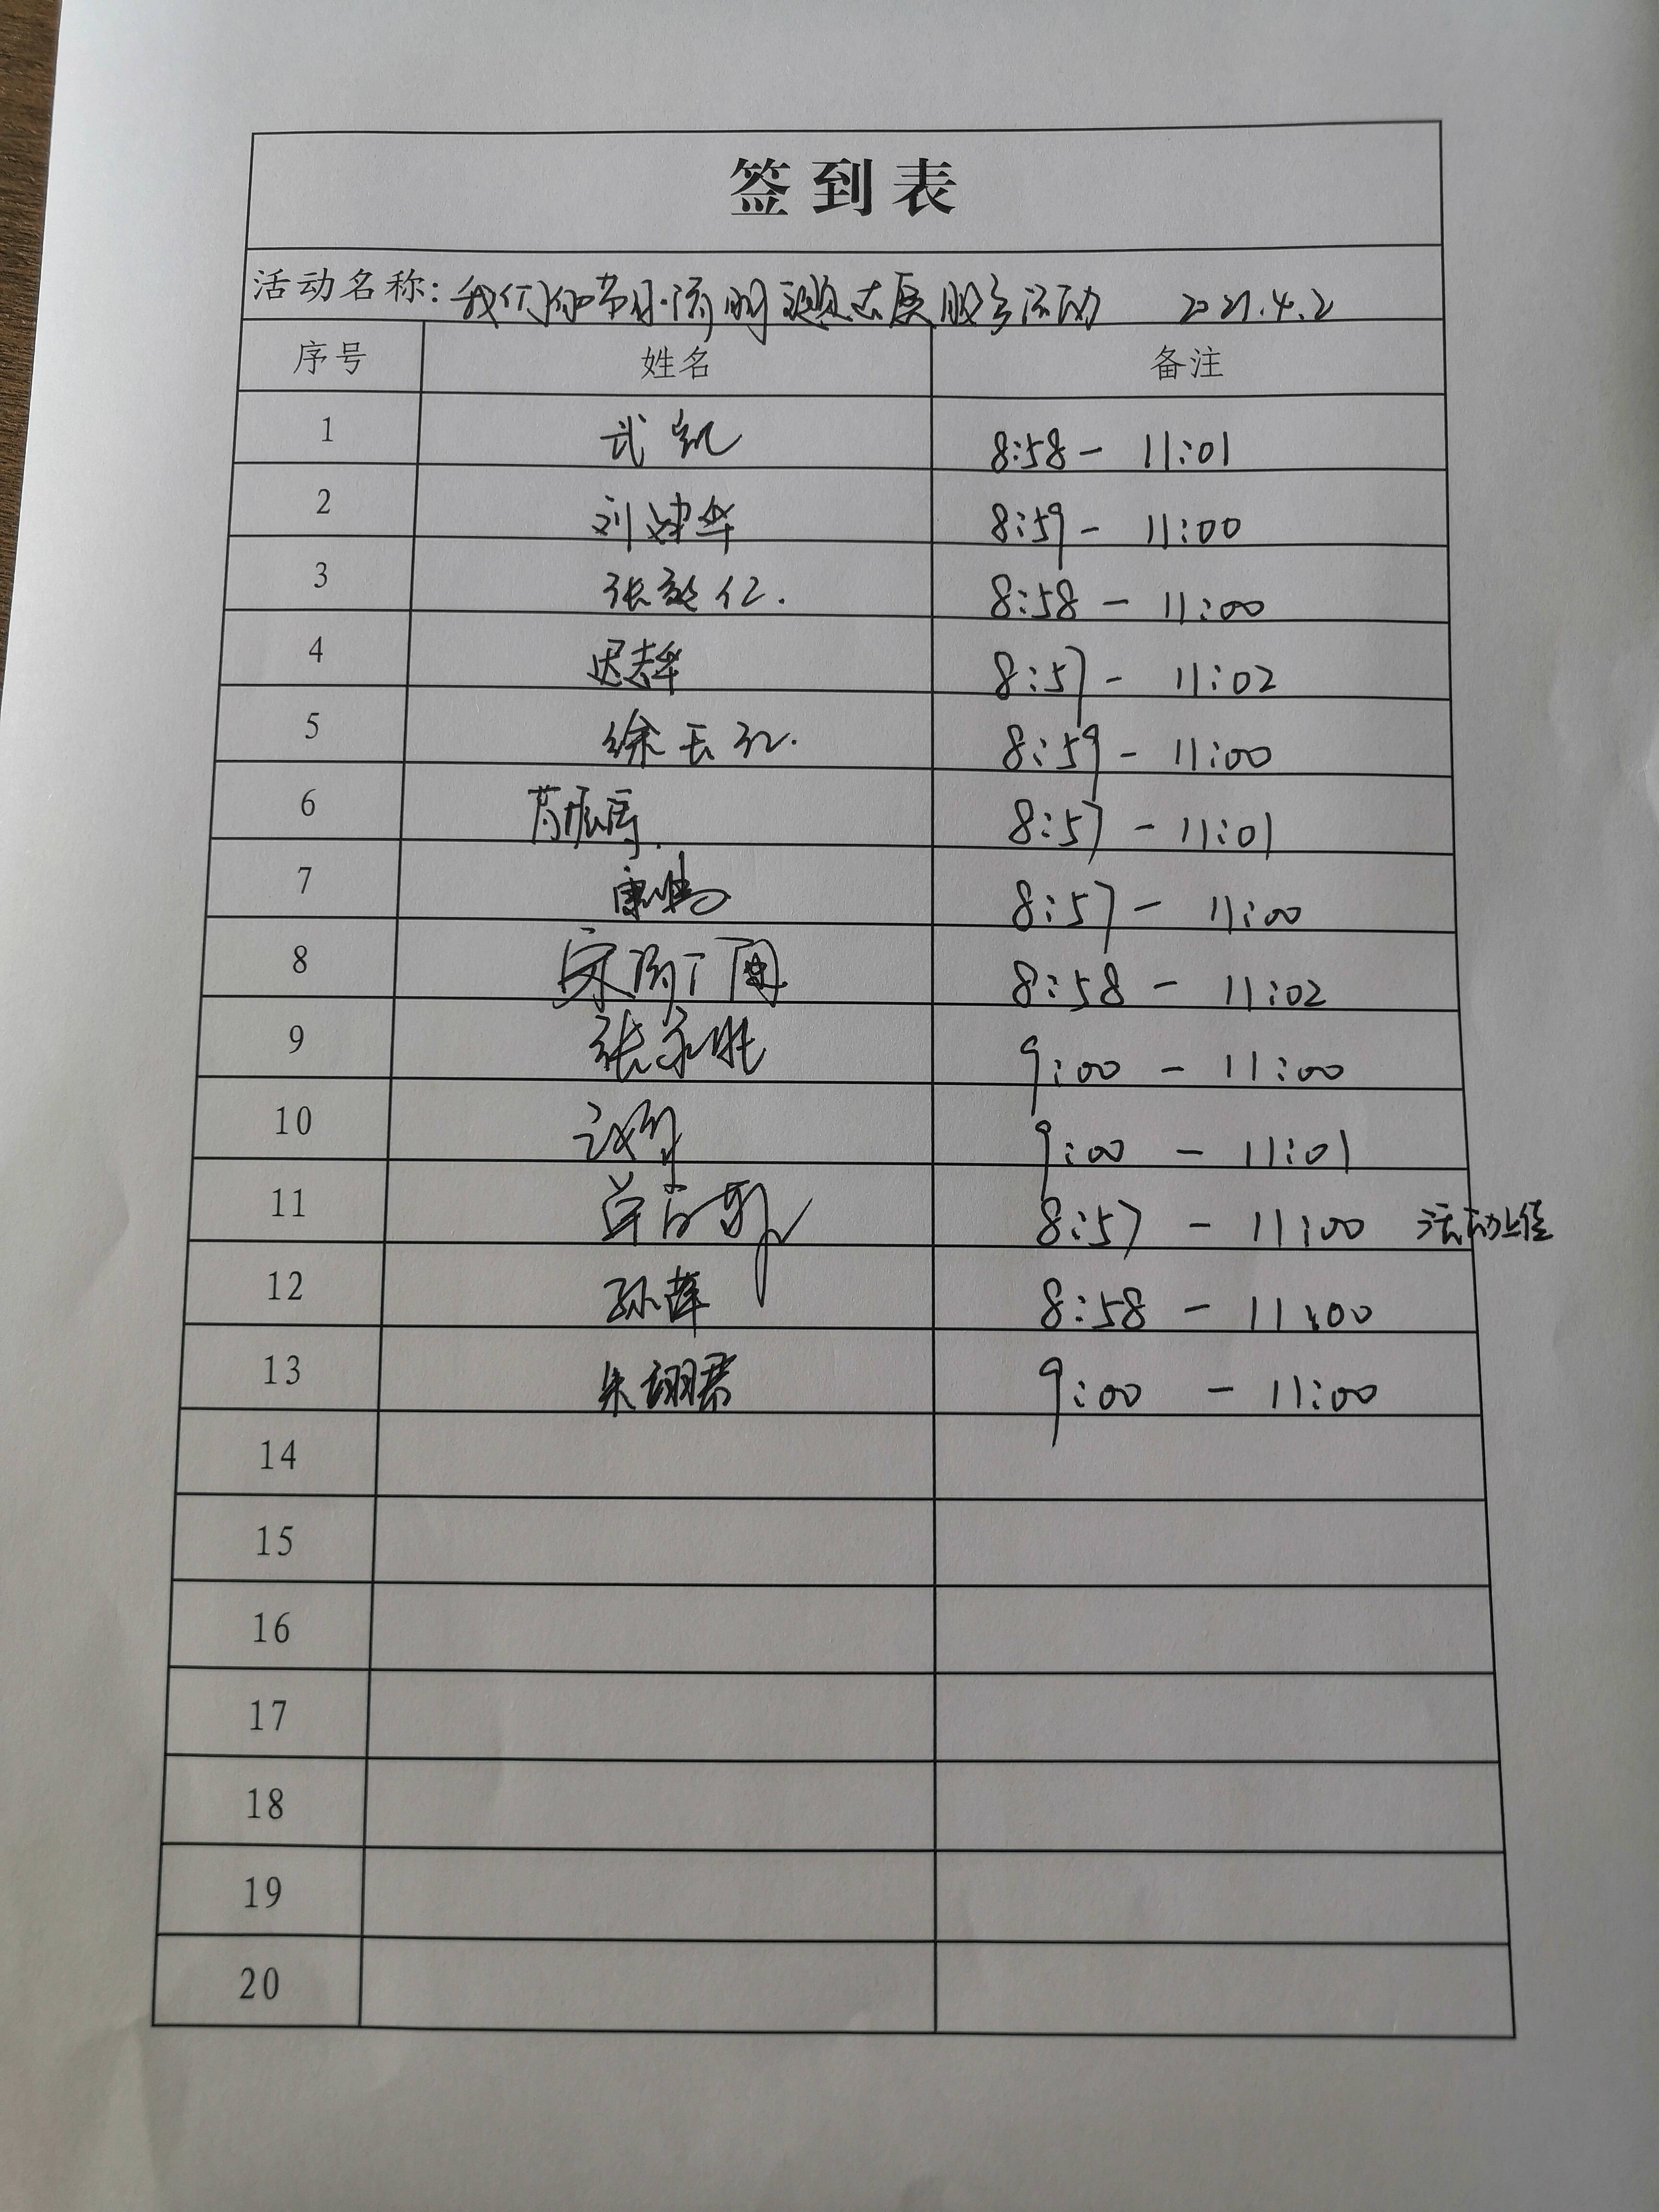 签到表
活动名称: 我们的节日·清明 志愿服务活动 2021.4.2
序号 姓名 备注
1 武凯 8:58 - 11:01
2 刘建华 8:59 - 11:00
3 张 仁. 8:58 - 11:00
4 迟 8:57 - 11:02
5 徐长红. 8:59 - 11:00
6 8:57 - 11:01
7 康鹏 8:57 - 11:00
8 宋 8:58 - 11:02
9 张永胜 9:00 - 11:00
10 9:00 - 11:01
11 8:57 - 11:00 活动上传
12 孙萍 8:58 - 11:00
13 朱翊君 9:00 - 11:00
14
15
16
17
18
19
20